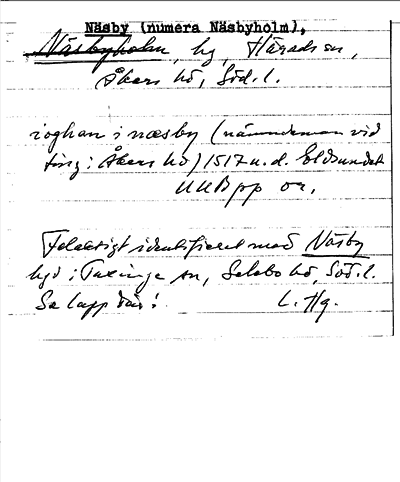 Näsby (numera Näsbyholm),
Näsbyholm, hg, Härads sn,
Åkers hd, Söd. l.
ioghan i næsby (nämndeman vid
ting i Åkers hd) 1517 u.d. Eldsundet
UUB pp or.
Felaktigt identifierat med Näsby
hgd i Taxinge sn, Selebo hd, Söd. l.
Se lapp där! L. Hg.